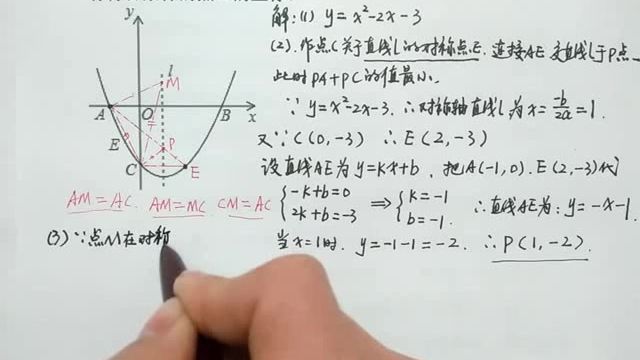 y
l
M
A O B x
P
E
C E
AM=AC. AM=MC CM=AC
(3)∵点M在对称
解:(1) y=x²-2x-3
(2).作点C关于直线l的对称点E.连接AE交直线l于P点
此时PA+PC的值最小.
∵ y=x²-2x-3. ∴对称轴直线l为x=-b/2a=1.
又∵C(0,-3) ∴E(2,-3)
设直线AE为y=kx+b, 把A(-1,0).E(2,-3)代
{-k+b=0 2k+b=-3 ⇒ {k=-1 b=-1. ∴直线AE为:y=-x-1.
当x=1时. y=-1-1=-2. ∴P(1,-2).